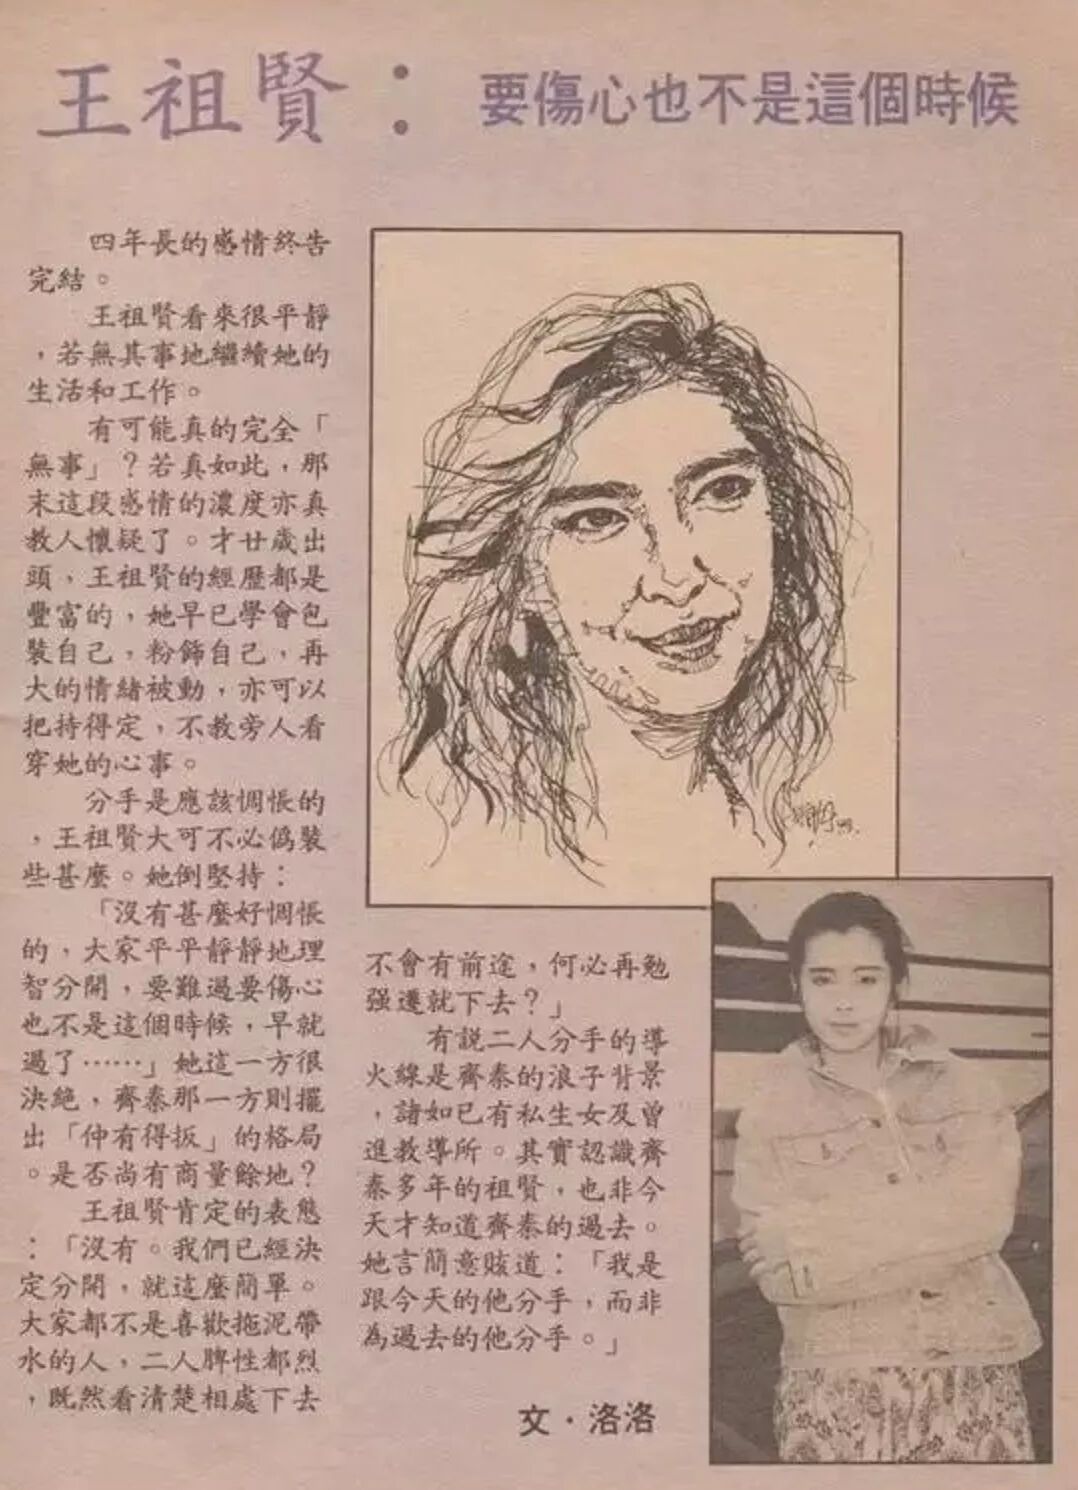 王祖賢：
要傷心也不是這個時候
四年長的感情終告
完結。
王祖賢看來很平靜
，若無其事地繼續她的
生活和工作。
有可能真的完全「
無事」？若真如此，那
末這段感情的濃度亦真
教人懷疑了。才廿歲出
頭，王祖賢的經歷都是
豐富的，她早已學會包
裝自己，粉飾自己，再
大的情緒被動，亦可以
把持得定，不教旁人看
穿她的心事。
分手是應該惆悵的
，王祖賢大可不必偽裝
些甚麼。她倒堅持：
「沒有甚麼好惆悵
的，大家平平靜靜地理
智分開，要難過要傷心
也不是這個時候，早就
過了……」她這一方很
決絕，齊秦那一方則擺
出「仲有得扳」的格局
。是否尚有商量餘地？
王祖賢肯定的表態
：「沒有。我們已經決
定分開，就這麼簡單。
大家都不是喜歡拖泥帶
水的人，二人脾性都烈
，既然看清楚相處下去
不會有前途，何必再勉
强遷就下去？」
有説二人分手的導
火線是齊秦的浪子背景
，諸如已有私生女及曾
進教導所。其實認識齊
秦多年的祖賢，也非今
天才知道齊秦的過去。
她言簡意賅道：「我是
跟今天的他分手，而非
為過去的他分手。」
文·洛洛